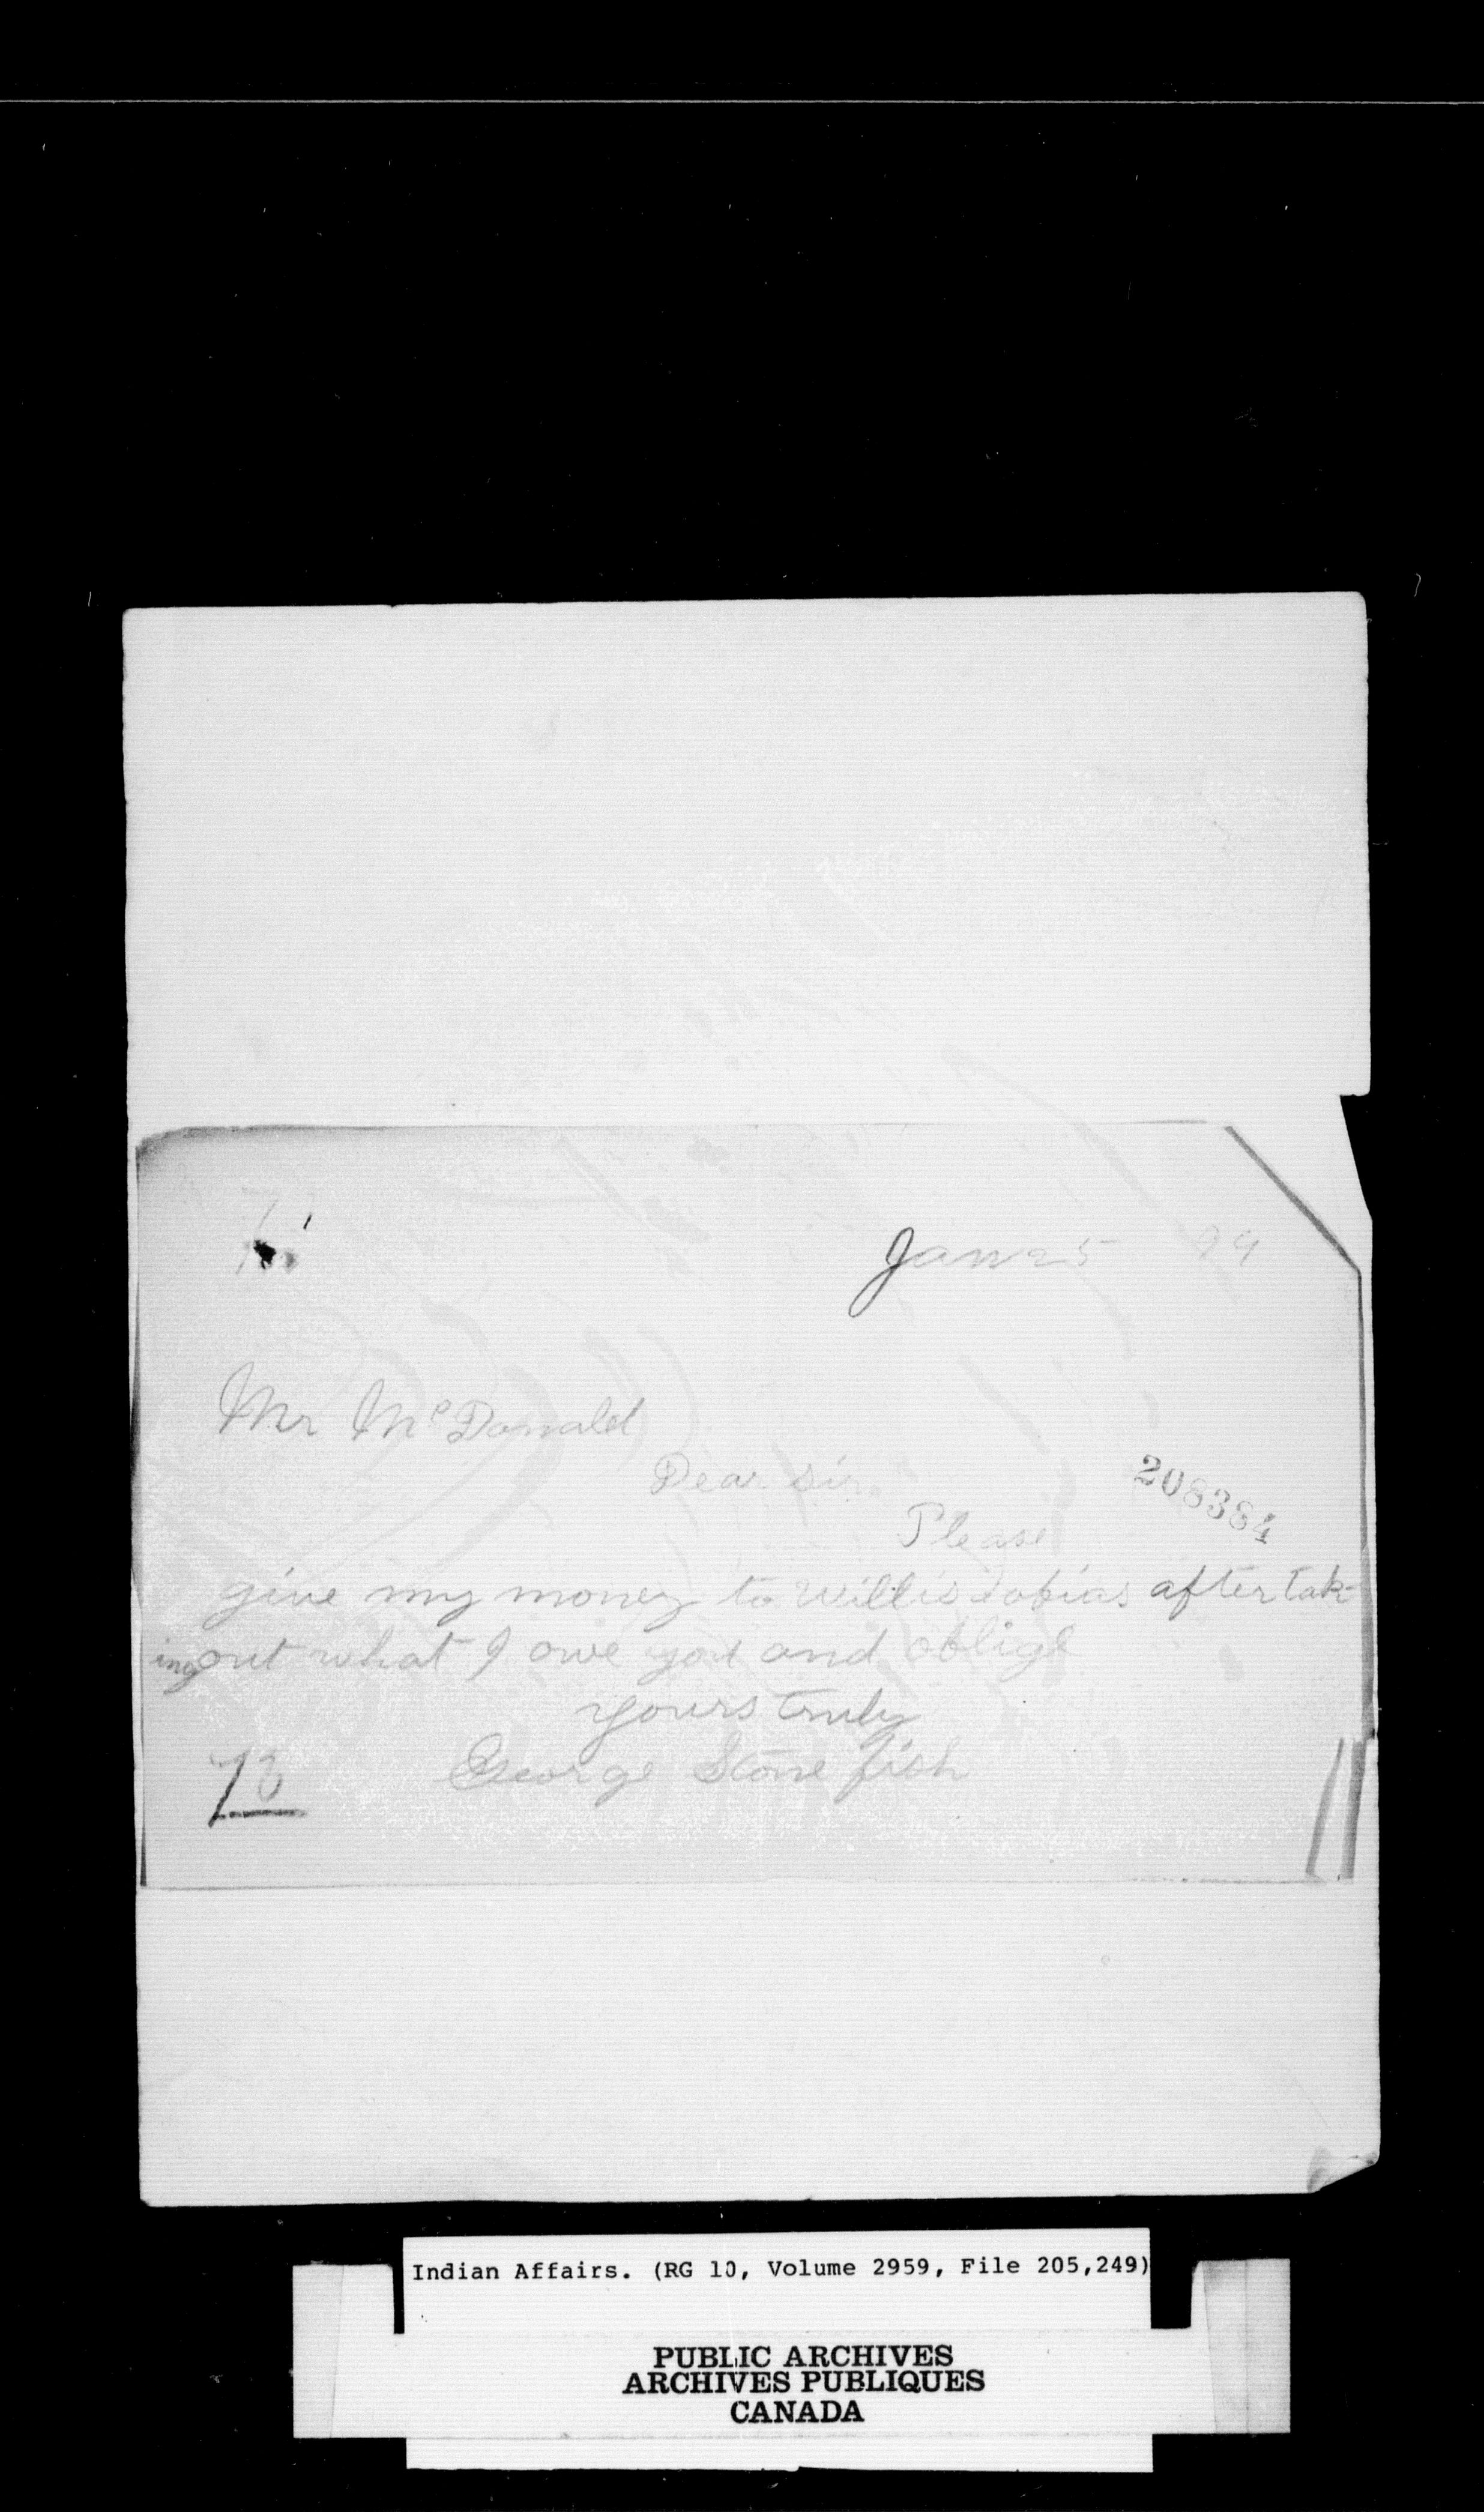 Jan 25 99
Mr McDonald
Dear Sir
208384
Please
give my money to Willis Tobias after tak-
ing out what I owe you and oblige
yours truly
George Stone fish
73
Indian Affairs. (RG 10, Volume 2959, File 205,249)
PUBLIC ARCHIVES
ARCHIVES PUBLIQUES
CANADA